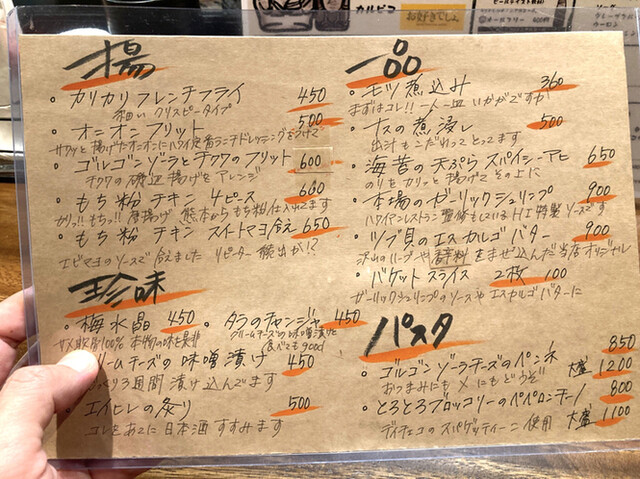 カルピス
お好きでしょ
揚
・カリカリフレンチフライ 450
細い クリスピータイプ
・オニオンフリット 500
サクッと揚げたオニオンにハワイ定番ランチドレッシングをつけて
・ゴルゴンゾーラとチクワのフリット 600
チクワの磯辺揚げをアレンジ
・もち粉チキン 4ピース 600
カリッ!!もちっ!!唐揚げ 熊本からもち粉仕入れてます
・もち粉チキン スイートマヨ合え 650
エビマヨのソースで合えました リピーター続出が!?
珍味
・梅水晶 450
サメ軟骨100% 本物の味を是非
・タラのチャンジャ 450
クリームチーズの味噌漬けと
食べても900円
リームチーズの味噌漬け 450
っくり3週間 漬け込んでます
エイヒレの炙り 500
コレをあてに 日本酒 すすみます
一品
・モツ煮込み 360
まずはコレ!! 一人一皿いかがですか!
・ナスの煮浸し 500
出汁もこだわってとってます
・海苔の天ぷら スパイシーアヒ 650
のりをカリッと揚げてその上に
・本場のガーリックシュリンプ 900
ハワイアンレストラン 監修もしているHI特製ソースです
・ツブ貝のエスカルゴバター 900
沢山のハーブや香味料をまぜ込んだ当店オリジナル
・バケットスライス 2枚 100
ガーリックシュリンプのソースやエスカルゴバターに
パスタ
・ゴルゴンゾーラチーズのペンネ 850
おつまみにも〆にもどうぞ 大盛 1200
・とろとろブロッコリーのペペロンチーノ 800
ディチェコのスパゲッティーニ使用 大盛 1100